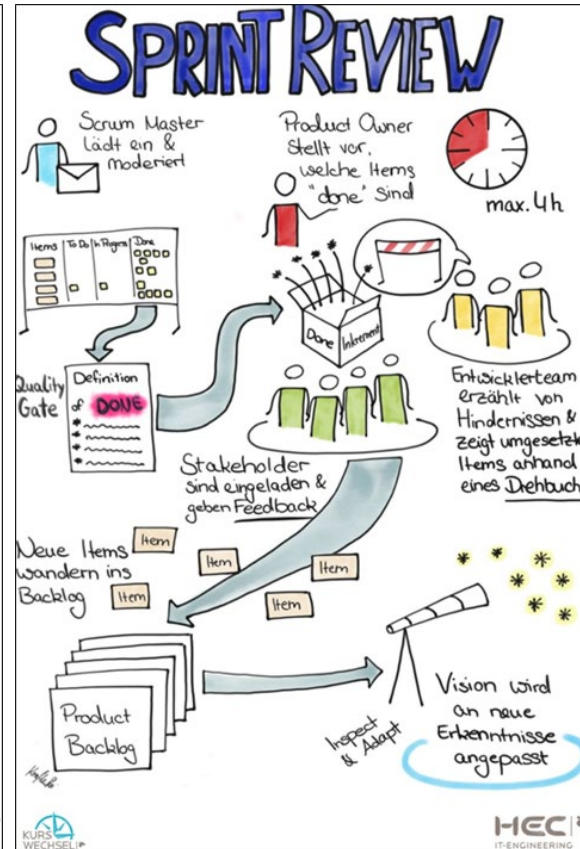 SPRINT REVIEW
Scrum Master
lädt ein &
moderiert
Product Owner
stellt vor,
welche Items
"done" sind
max. 4h
Items
To Do
In Progress
Done
Quality
Gate
Definition
of DONE
Done
Inkrement
Entwicklerteam
erzählt von
Hindernissen &
zeigt umgesetzte
Items anhand
eines Drehbuch
Stakeholder
sind eingeladen &
geben Feedback
Neue Items
wandern ins
Backlog
Item
Item
Item
Item
Item
Product
Backlog
Inspect
& Adapt
Vision wird
an neue
Erkenntnisse
angepasst
KURS
WECHSEL!
HEC
IT-ENGINEERING